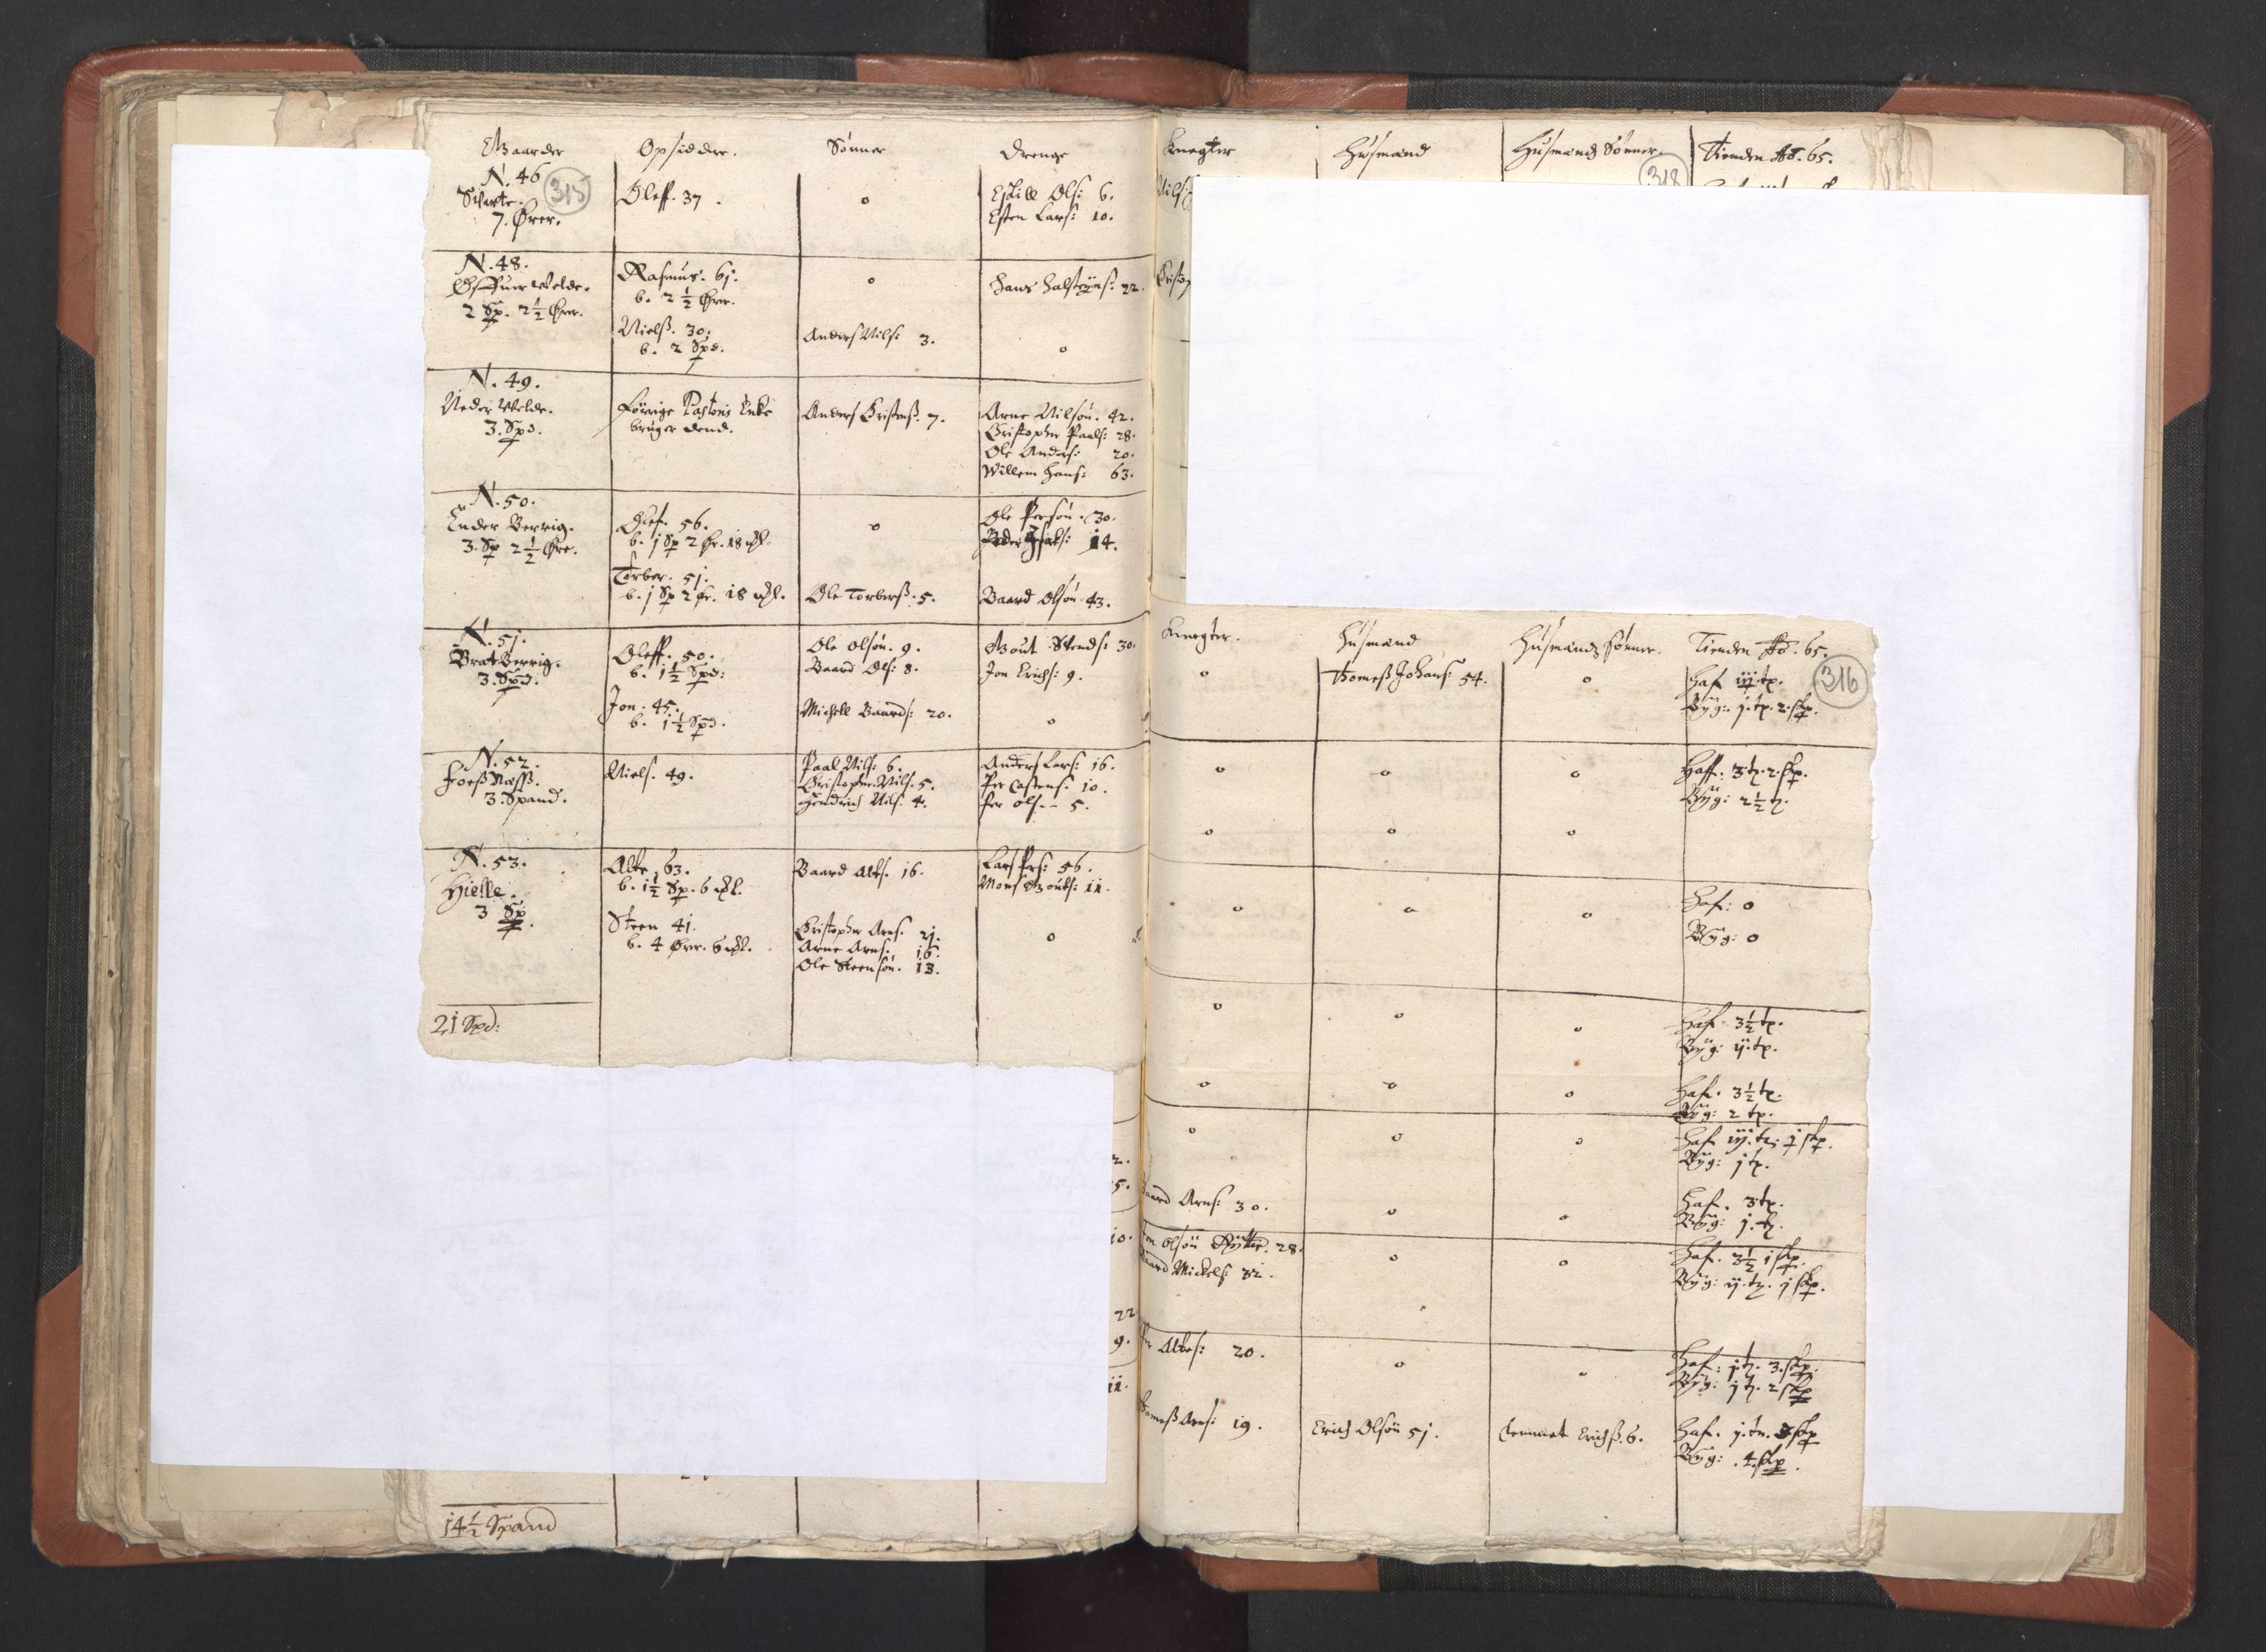 Gaarder
Opsidder.
Sønner
Drenge
N. 46
315
7. Ører.
Oleff. 37.
o
Eskill Ols: 6.
Esten Lars: 10.
N. 48.
2 Sp. 2½ Ører.
Rasmus. 61.
b. 2½ Ører.
o
Hans Halsteyns: 22.
Nielß. 30.
b. 2 Spd.
Anders Nils: 3.
o
N. 49.
Neder Velde.
3. Spd.
Forrige Pastoris Enke
bruger dend.
Anders Christenß. 7.
Arne Nilsøn. 42.
Christopher Paals: 28.
Ole Anders: 20.
Willem Hans: 63.
N. 50.
Inder Berrig.
3. Sp 2½ Øre.
Olef. 56.
b. 1 Sp 2 Ør. 18
o
Ole Persøn. 30.
14.
Torber. 51.
b. 1 Sp 2 Ør. 18
Ole Torberß. 5.
Baard Olsøn 43.
N. 51.
Brat Berrig.
3. Spd.
Oleff. 50.
b. 1½ Spd:
Ole Olsøn. 9.
Baard Ols: 8.
Gout Svends: 30.
Jon Erichs: 9.
Jon. 45.
b. 1½ Spd.
Michell Baards: 20.
o
N. 52.
3. Spand.
Niels. 49.
Paal Nils: 6.
Christopher Nils. 5.
Hendrich Nils: 4.
Anders Lars: 16.
Per Castens: 10.
Per Ols-- 5.
N. 53.
Hielle.
3 Sp.
63.
b. 1½ Sp. 6
Baard 16.
Lars Pers: 56.
Mons Gouts: 11.
Steen 41.
b. 4 Ører. 6
Christopher Arns. 21.
Arne Arns. 16.
Ole Steensøn. 13.
o
21 Spd:
14½ Spand
Knegter
Husmænd
Husmænds Sønner.
Tienden Ao. 65.
318
Nils
Knegter.
Husmænd
Husmænds Sønner.
Tienden Ao. 65.
316
o
Thomeß Johans: 54.
o
Haf iij. tp.
Byg: j. tp. 2. skp.
o
o
o
Haff: 3 tz. 2. skp.
Byg: 2½ tz.
o
o
o
o
o
o
Haf: o
Byg: o
o
o
o
Haf. 3½ tp.
Byg: ij. tp.
o
o
o
Haf. 3½ tz.
Byg: 2 tp.
o
o
o
Haf iij. tz. j skp.
Byg: j tp.
Baard Arns: 30.
o
o
Haf. 3. tp.
Byg: j. tz.
Jon Olsøn Rytter. 28.
Baard Mickels: 32.
o
o
Haf. 3½ j skp.
Byg: ij. tz. j skp.
20.
o
o
Haf: j tz. 3. skp.
Byg: j tz. 2 skp
Thomeß Arns: 19.
Erich Olsøn 51.
Erichß. 6.
Haf. j. tn. 3 skp
Byg: . 4. skp.